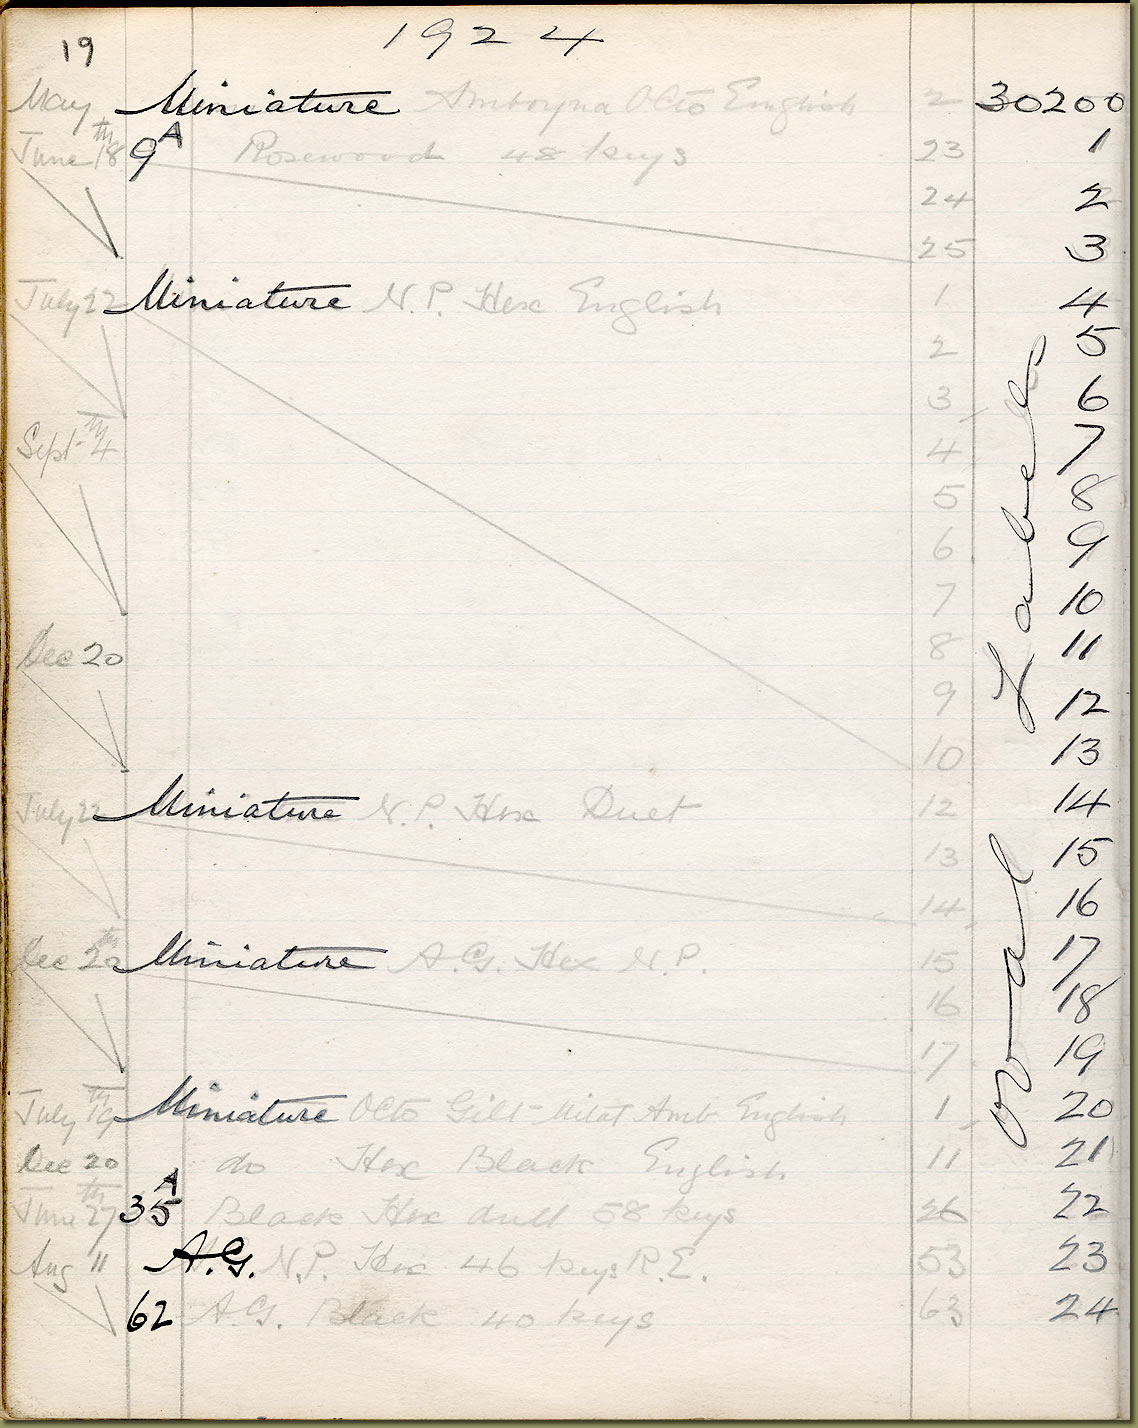 19 1924
May Miniature Amboyna Octo English 2 30200
June 18th 9A Rosewood 48 keys 23 1
24 2
25 3
July 22 Miniature N.P. Hex English 1 4
2 5
3 6
Sept 4th 4 7
5 8
6 9
7 10
Dec 20 8 11
9 12
10 13
July 22 Miniature N.P. Hex Duet 12 14
13 15
14 16
Dec Miniature A.G. Hex N.P. 15 17
16 18
17 19
July 19th Miniature Octo Gilt Amb English 1 20
Dec 20 do Hex Black English 11 21
June 27th 35A Black Hex dull 58 keys 26 22
Aug 11 A.G. N.P. Hex 46 keys R.E. 53 23
62 A.G. Black 40 keys 63 24
Oval Labels